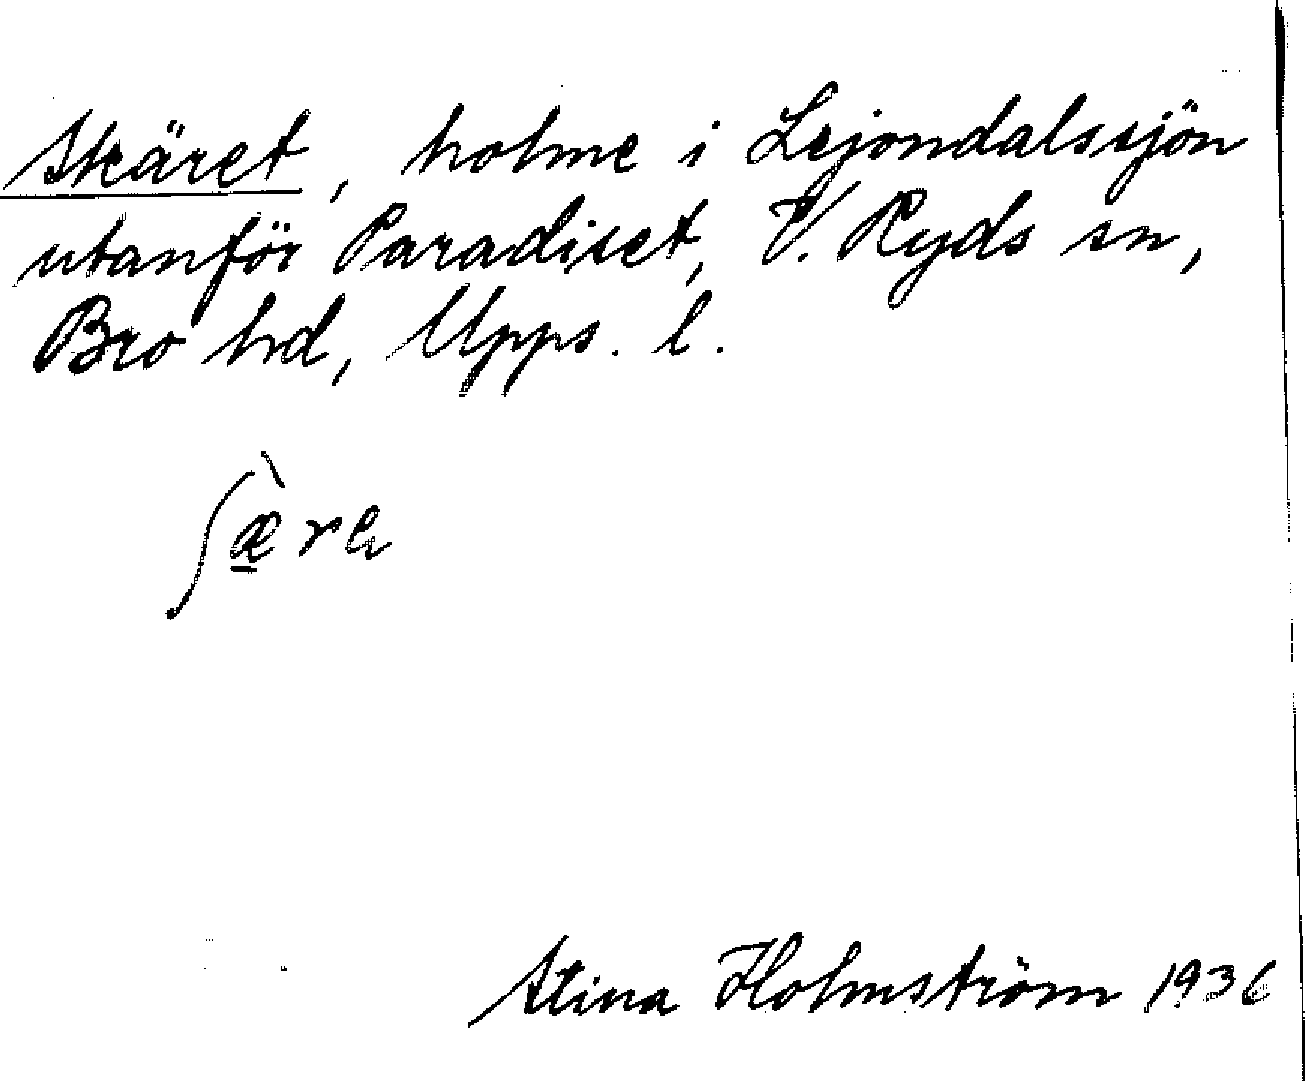 Skäret, holme i Lejondalssjön
utanför Paradiset, V. Ryds sn,
Bro hd, Upps. l.
ʃæ̠̀rə
Stina Holmström 1936